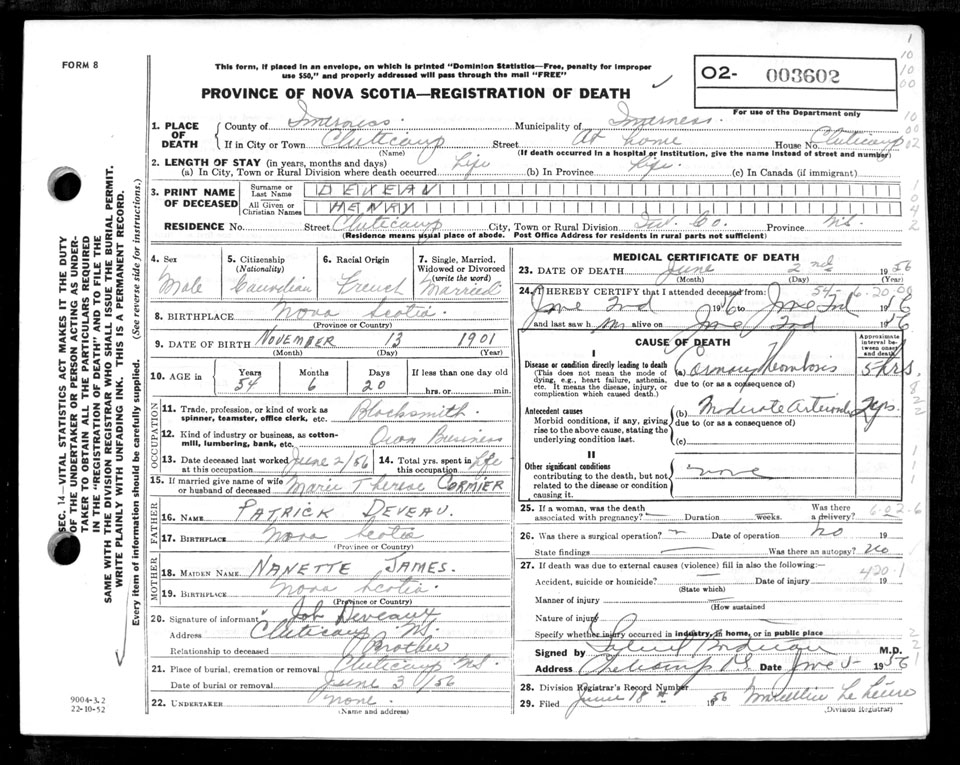 FORM 8
This form, if placed in an envelope, on which is printed "Dominion Statistics—Free, penalty for improper
use $50," and properly addressed will pass through the mail "FREE"
PROVINCE OF NOVA SCOTIA—REGISTRATION OF DEATH
02- 003602
For use of the Department only
1. PLACE OF DEATH
County of Inverness Municipality of Inverness
If in City or Town Cheticamp Street At home House No. Cheticamp
(Name) (If death occurred in a hospital or institution, give the name instead of street and number)
2. LENGTH OF STAY (in years, months and days)
(a) In City, Town or Rural Division where death occurred Life (b) In Province Life (c) In Canada (if immigrant)
3. PRINT NAME OF DECEASED
Surname or Last Name DEVEAU
All Given or Christian Names HENRY
RESIDENCE No. Street Cheticamp City, Town or Rural Division Inv. Co. Province N.S.
(Residence means usual place of abode. Post Office Address for residents in rural parts not sufficient)
4. Sex Male
5. Citizenship (Nationality) Canadian
6. Racial Origin French
7. Single, Married, Widowed or Divorced (write the word) Married
8. BIRTHPLACE Nova Scotia
(Province or Country)
9. DATE OF BIRTH NOVEMBER 13 1901
(Month) (Day) (Year)
10. AGE in Years 54 Months 6 Days 20 If less than one day old
hrs. or min.
OCCUPATION
11. Trade, profession, or kind of work as spinner, teamster, office clerk, etc. Blacksmith
12. Kind of industry or business, as cotton-mill, lumbering, bank, etc. Own Business
13. Date deceased last worked at this occupation June 2/56
14. Total yrs. spent in this occupation Life
15. If married give name of wife or husband of deceased Marie Therese CORMIER
FATHER
16. NAME PATRICK DEVEAU.
17. BIRTHPLACE Nova Scotia
(Province or Country)
MOTHER
18. MAIDEN NAME NANETTE JAMES.
19. BIRTHPLACE Nova Scotia
(Province or Country)
20. Signature of informant Job Deveaux
Address Cheticamp N.S.
Relationship to deceased Brother
21. Place of burial, cremation or removal Cheticamp N.S.
Date of burial or removal June 3/56
22. UNDERTAKER none.
(Name and address)
MEDICAL CERTIFICATE OF DEATH
23. DATE OF DEATH June 2nd 1956
(Month) (Day) (Year)
24. I HEREBY CERTIFY that I attended deceased from:
54-6-20.00
June 2nd 1956 to June 2nd 1956
and last saw him alive on June 2nd 1956
CAUSE OF DEATH
Approximate interval between onset and death
I
Disease or condition directly leading to death
(This does not mean the mode of dying, e.g., heart failure, asthenia, etc. It means the disease, injury, or complication which caused death.)
(a) Coronary Thrombosis 5 hrs.
due to (or as a consequence of)
Antecedent causes
Morbid conditions, if any, giving rise to the above cause, stating the underlying condition last.
(b) Moderate 2 yrs.
due to (or as a consequence of)
(c)
II
Other significant conditions
contributing to the death, but not related to the disease or condition causing it.
none
25. If a woman, was the death associated with pregnancy? Duration weeks. Was there a delivery?
6-02-6
26. Was there a surgical operation? Date of operation no 19
State findings Was there an autopsy? no
27. If death was due to external causes (violence) fill in also the following:—
420-1
Accident, suicide or homicide? Date of injury 19
(State which)
Manner of injury
(How sustained)
Nature of injury
Specify whether injury occurred in industry, in home, or in public place
Signed by M.D.
Address Cheticamp Date June 5- 1956
28. Division Registrar's Record Number
29. Filed June 18th 1956
(Division Registrar)
SEC. 14—VITAL STATISTICS ACT MAKES IT THE DUTY
OF THE UNDERTAKER OR PERSON ACTING AS UNDER-
TAKER TO OBTAIN ALL THE PARTICULARS REQUIRED
IN THE "REGISTRATION OF DEATH" AND TO FILE THE
SAME WITH THE DIVISION REGISTRAR WHO SHALL ISSUE THE BURIAL PERMIT.
WRITE PLAINLY WITH UNFADING INK. THIS IS A PERMANENT RECORD.
Every item of information should be carefully supplied. (See reverse side for instructions.)
9004-3.2
22-10-52